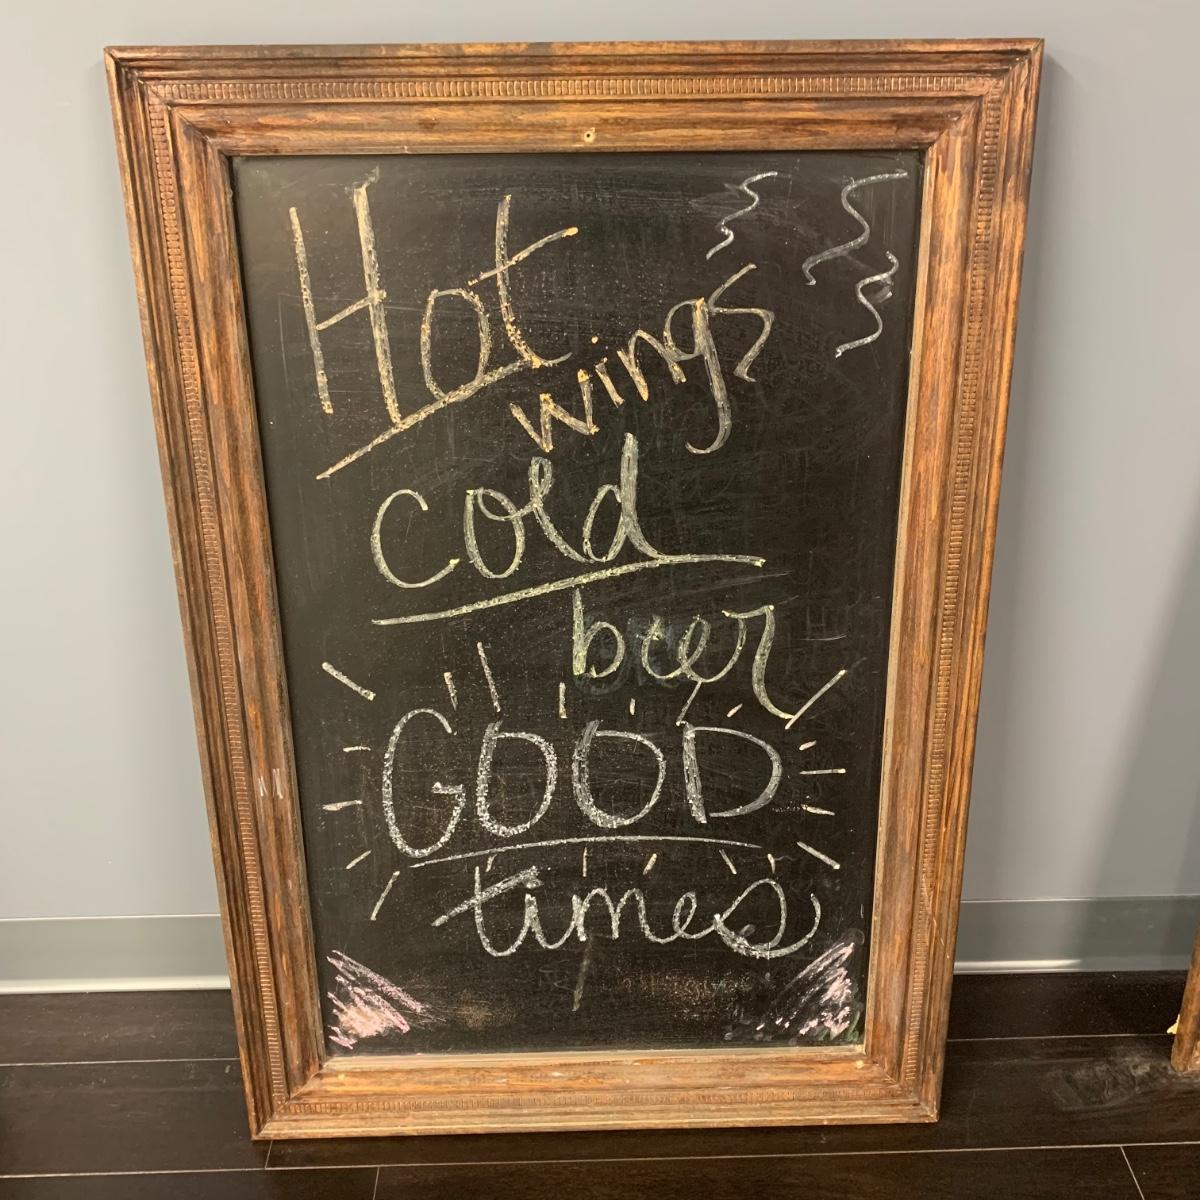 Hot
wings
cold
beer
GOOD
times